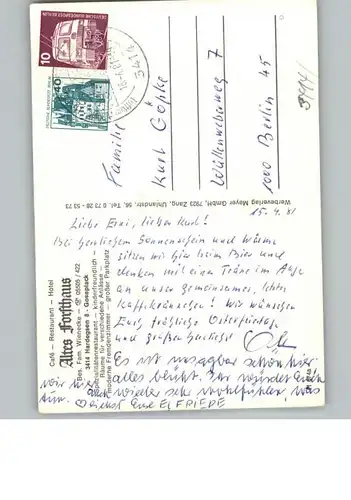 10
DEUTSCHE BUNDESPOST BERLIN
40
3414
Familie
Kurt Göpke
Wüllenweberweg 7
1000 Berlin 45
Werbeverlag Meyer GmbH, 7923 Zang, Uhlandstr. 56, Tel. 0 73 28 - 53 73
Café – Restaurant – Hotel
Altes Forsthaus
Bes. Fam. Winnecke – ☎ 05505 / 422
3414 Hardegsen 8 - Goseplack
Spezialitätenrestaurant – kinderfreundlich –
Räume für verschiedene Anlässe –
moderne Fremdenzimmer – großer Parkplatz
15.4.81
Liebe Erni, lieber Kurt!
Bei herrlichem Sonnenschein und Wärme
sitzen wir hier beim Bier und
denken mit eine Träne im Auge
an unser gemeinsames, letztes
Kaffeekränzchen! Wir wünschen
Euch fröhliche Osterfeiertage
und grüßen herzlichst
Es ist unsagbar schön hier
alles blüht. Ihr würdet Euch
auch wieder sehr wohlfühlen, was
wir hier
tun.
herzlichst Eure ELFRIEDE